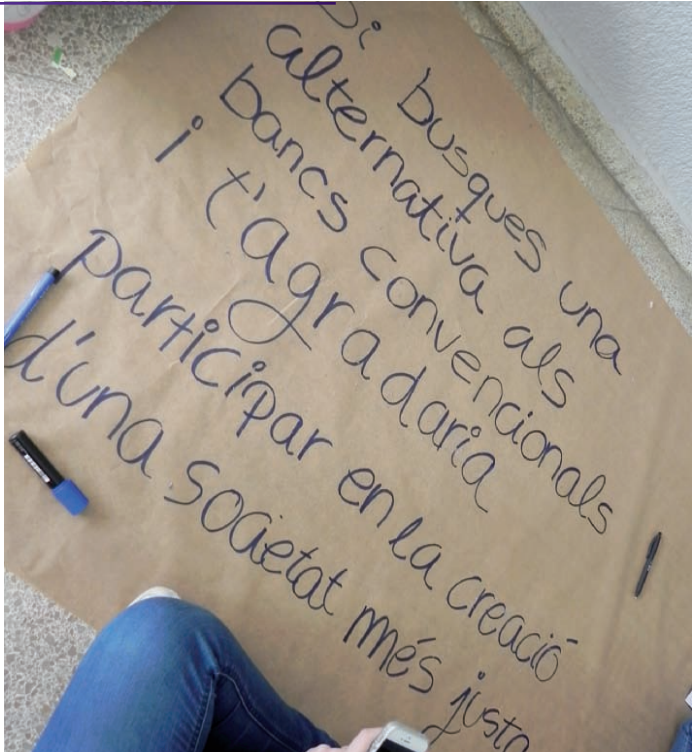 Si busques una
alternativa als
bancs convencionals
i t'agradaria
participar en la creació
d'una societat més justa